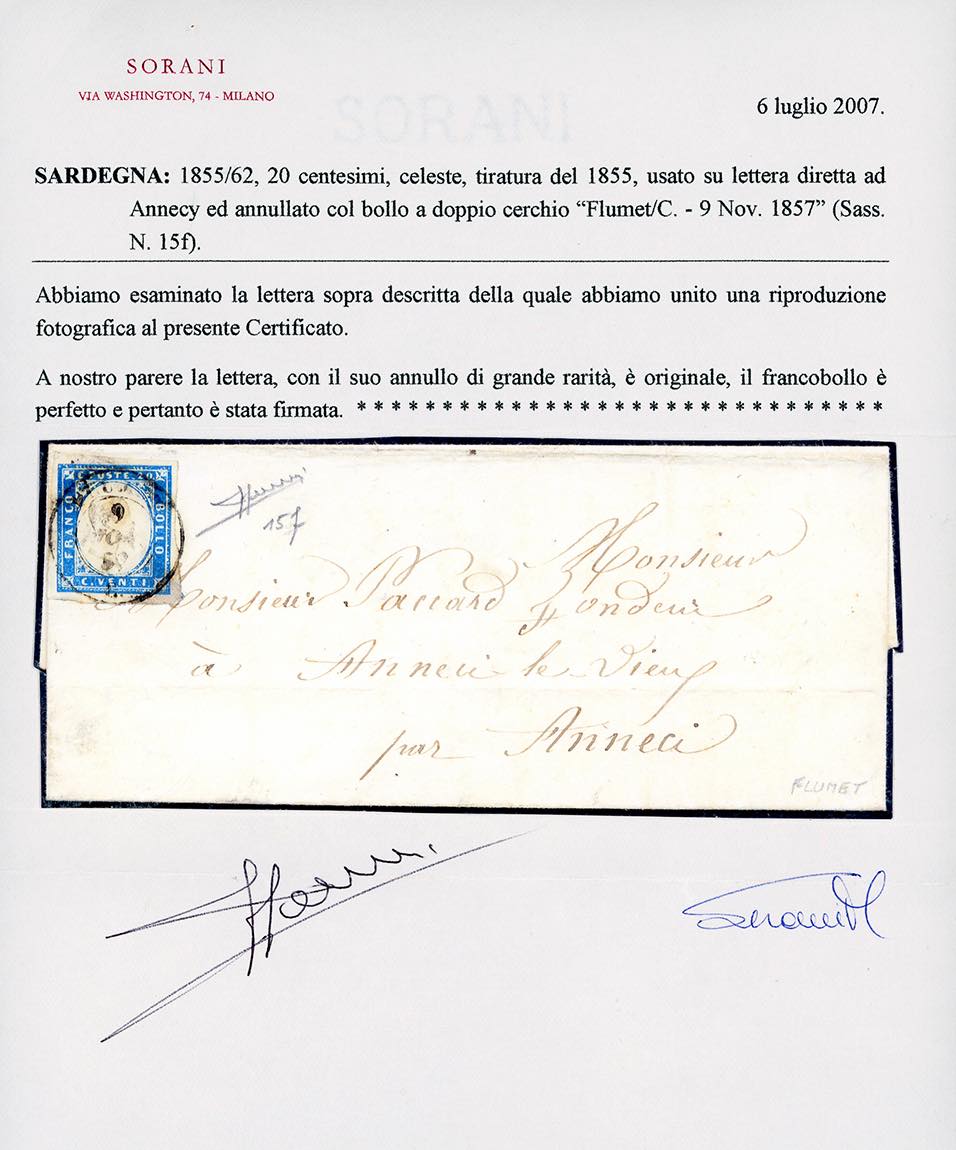 SORANI
VIA WASHINGTON, 74 - MILANO
SORANI
6 luglio 2007.
SARDEGNA: 1855/62, 20 centesimi, celeste, tiratura del 1855, usato su lettera diretta ad
Annecy ed annullato col bollo a doppio cerchio “Flumet/C. - 9 Nov. 1857” (Sass.
N. 15f).
Abbiamo esaminato la lettera sopra descritta della quale abbiamo unito una riproduzione
fotografica al presente Certificato.
A nostro parere la lettera, con il suo annullo di grande rarità, è originale, il francobollo è
perfetto e pertanto è stata firmata. * * * * * * * * * * * * * * * * * * * * * * * * * * * * * * *
FRANCO
BOLLO
C. VENTI
9
15f
Monsieur
Monsieur Paccard
à Anneci le Vieux
par Anneci
FLUMET